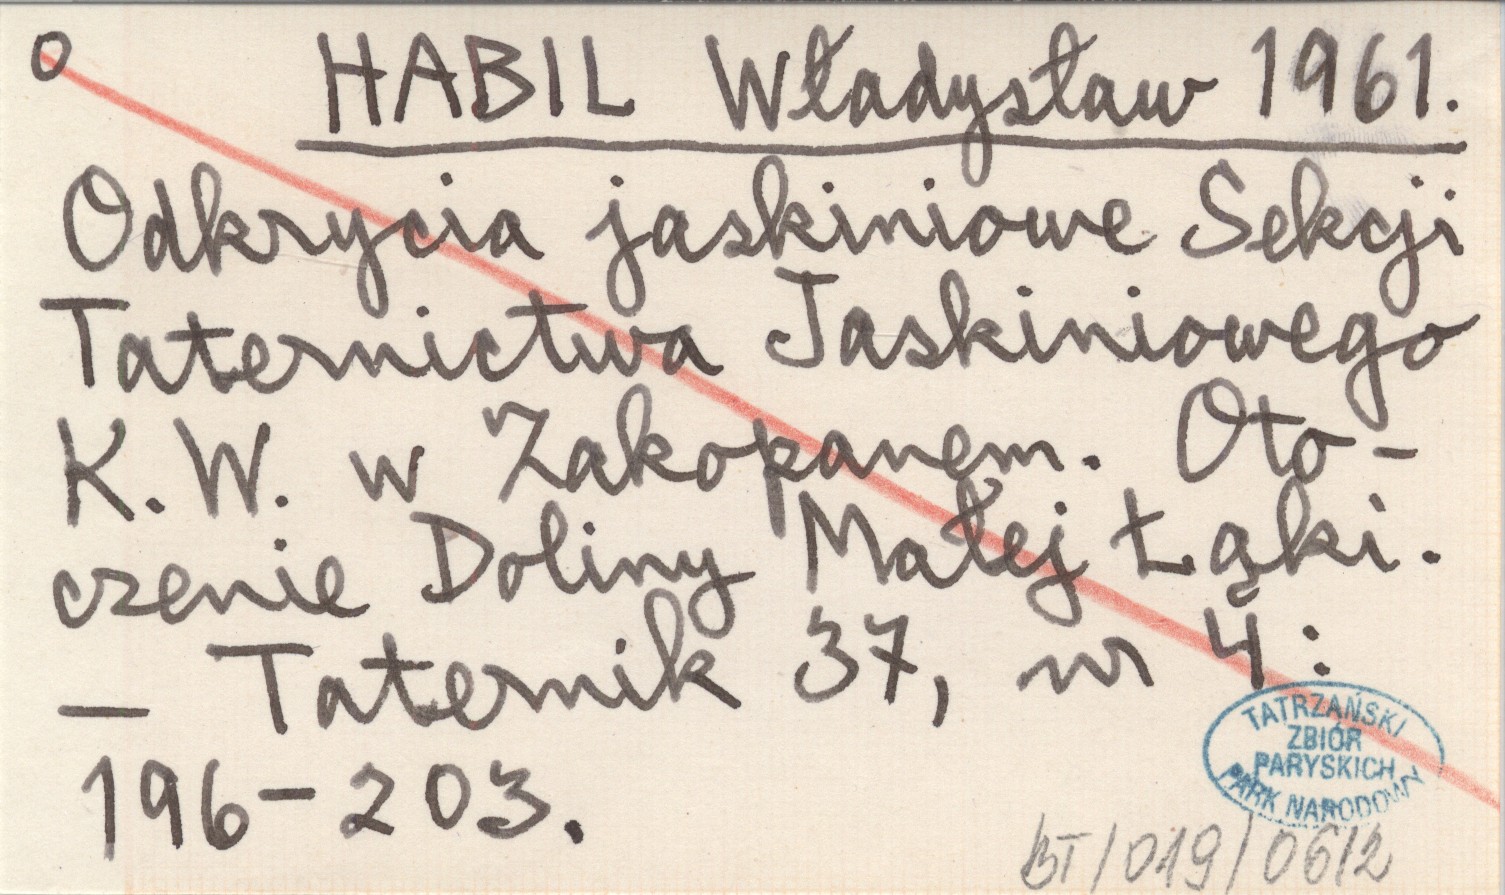 o HABIL Władysław 1961.
Odkrycia jaskiniowe Sekcji
Taternictwa Jaskiniowego
K. W. w Zakopanem. Oto-
czenie Doliny Małej Łąki.
— Taternik 37, nr 4:
196-203.
TATRZAŃSKI
ZBIÓR
PARYSKICH
PARK NARODOWY
BT/019/0612